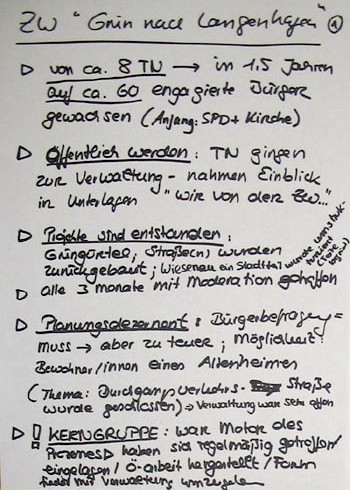 ZW "Grün nach Langenhagen" ①
▷ von ca. 8 TN → in 1,5 Jahren
auf ca. 60 engagierte Bürger
gewachsen (Anfang: SPD + Kirche)
▷ Öffentlich werden: TN gingen
zur Verwaltung - nahmen Einblick
in Unterlagen "wir von der ZW..."
▷ Projekte sind entstanden:
Grüngürtel, Straße(n) wurden
zurückgebaut; Wiesenau ein Stadtteil wurde
▷ alle 3 Monate mit Moderation getroffen
▷ Planungsdezernent: Bürgerbefragung=
muss → aber zu teuer; Möglichkeit:
Bewohner/innen eines Altenheimes
(Thema: Durchgangsverkehrs- Straße
wurde geschlossen) → Verwaltung war sehr offen
▷ ! KERNGRUPPE: war Motor des
Prozesses ▷ haben sich regelmäßig getroffen/
eingeladen / Ö-arbeit hergestellt /
mit Verwaltung umzugehen